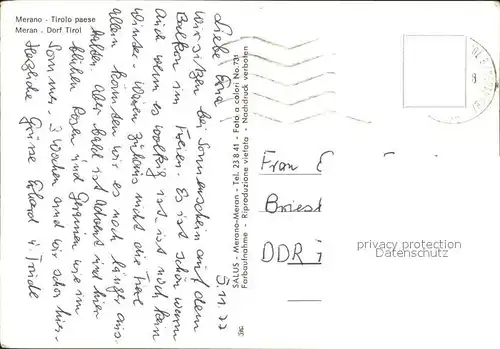 Merano - Tirolo paese
Meran - Dorf Tirol
5.11.77
Liebe Erna!
Wir sitzen bei Sonnenschein auf dem
Balkon im Freien. Es ist schön warm
auch wenn es wolkig ist, ist noch kein
Winder. Wären zuhaus nicht die Tiere
allein könnten wir es noch länger aus-
halten. Aber bald ist Advent und hier
blühen Rosen und Geranien wie im
Sommer. 3 Wochen sind wir schon hier.
Herzliche Grüsse Erhard u. Trude
SALUS - Merano-Meran - Tel. 23841 - Foto a colori No. 731
Farbaufnahme - Riproduzione vietata - Nachdruck verboten
Frau E
Briest
DDR
privacy protection
Datenschutz